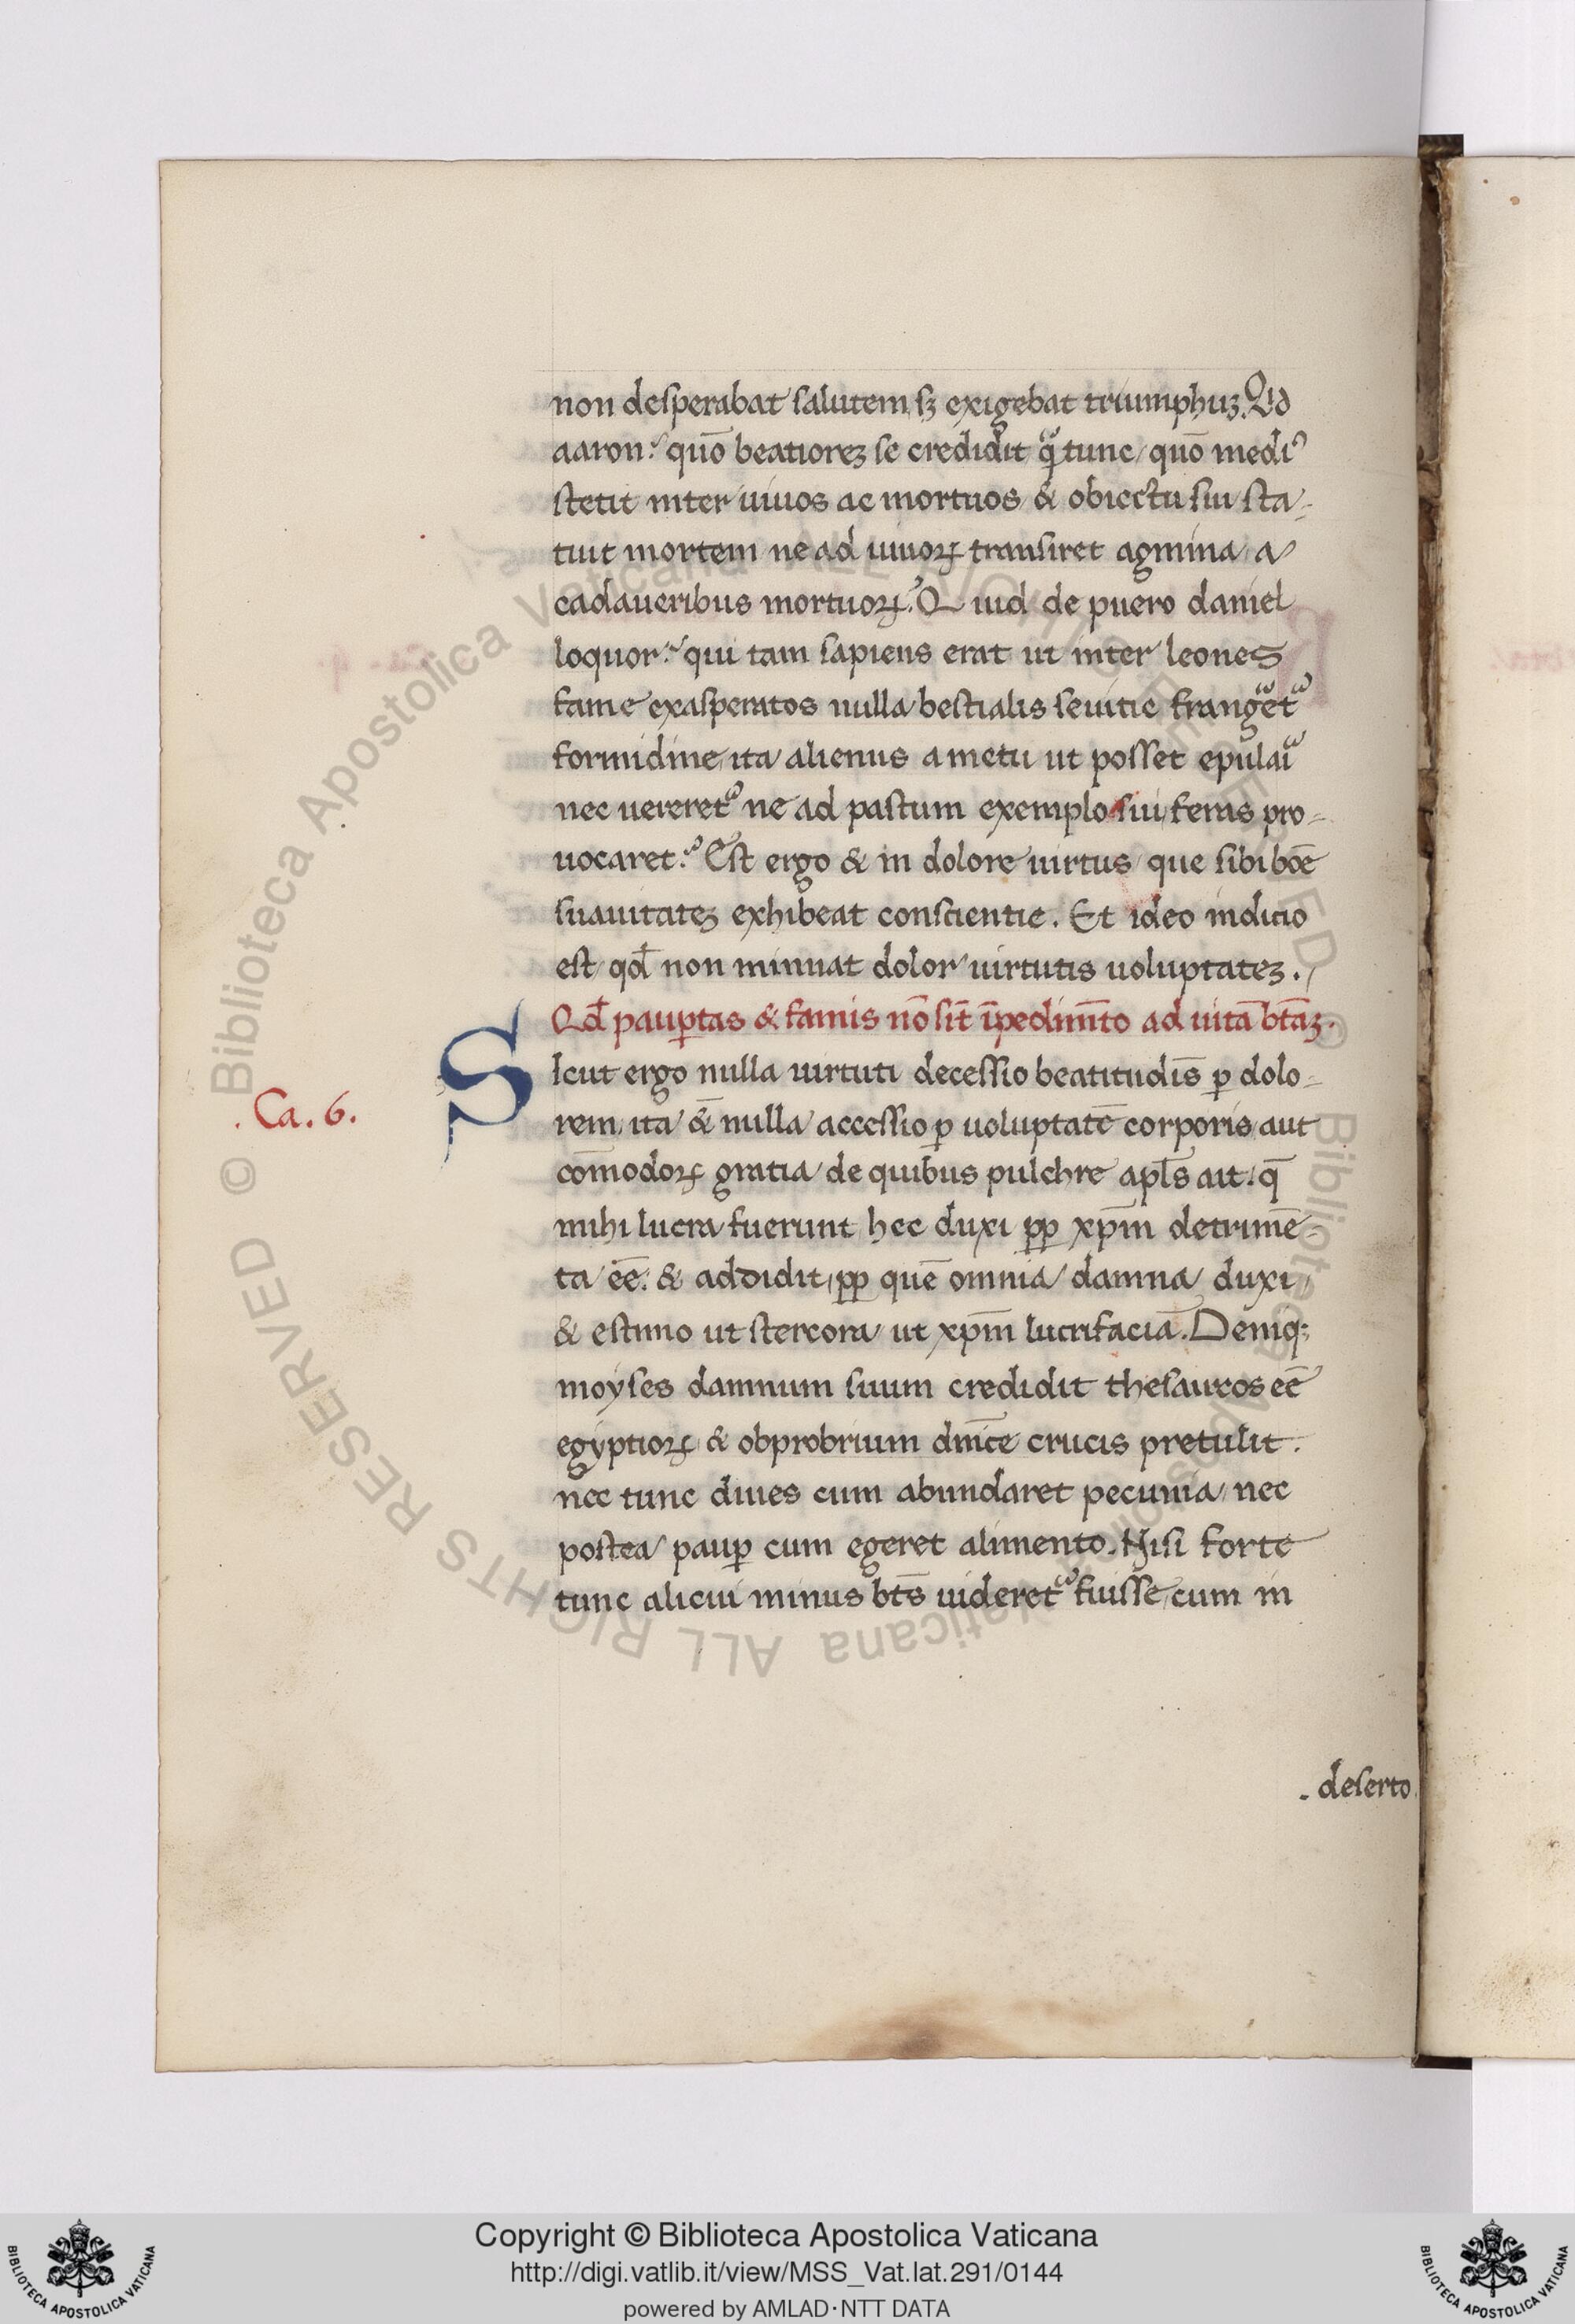 non desperabat salutem, sꝫ exigebat triumphuꝫ. Qid
aaron? quō beatioreꝫ se credidit q̃ tunc / quō medi᾽
stetit inter uiuos ac mortuos & obiectu sui sta-
tuit mortem ne ad uiuoꝝ transiret agmina a
cadaueribus mortuoꝝ? Quid de puero daniel
loquor? qui tam sapiens erat ut inter leones
fame exasperatos nulla bestialis seuitie frangeret᾽
formidine, ita alienus a metu ut posset epulari
nec uereret᾽ ne ad pastum exemplo sui feras pro-
uocaret? Est ergo & in dolore uirtus / que sibi bōe
suauitateꝫ exhibeat conscientie. Et ideo indicio
est / qd̄ non minuat dolor uirtutis uoluptateꝫ.
Qd̄ pauꝑtas & famis nō sīt īpedimt̄o ad uitā bt̄aꝫ.
Sicut ergo nulla uirtuti decessio beatitudīs ꝑ dolo-
. Ca. 6.
rem, ita & nulla accessio ꝑ uoluptatē corporis, aut
cōmodoꝝ gratia / de quibus pulchre apl̄s ait. q̄
mihi lucra fuerunt, hec duxi ꝓp xp̄m detrimē-
ta eē. & addidit, ꝓp quē omnia damna duxi,
& estimo ut stercora ut xp̄m lucrifaciā. Deniqꝫ
moyses damnum suum credidit thesauros eē
egyptioꝝ, & obprobrium dn̄ice crucis pretulit.
nec tunc diues cum abundaret pecunia, nec
postea pauꝑ cum egeret alimento. Nisi forte
tunc alicui minus bt̄s uideret᾽ fuisse, cum in
. deserto.
Copyright © Biblioteca Apostolica Vaticana
http://digi.vatlib.it/view/MSS_Vat.lat.291/0144
powered by AMLAD·NTT DATA
BIBLIOTECA APOSTOLICA VATICANA
BIBLIOTECA APOSTOLICA VATICANA
© Biblioteca Apostolica Vaticana ALL RIGHTS RESERVED